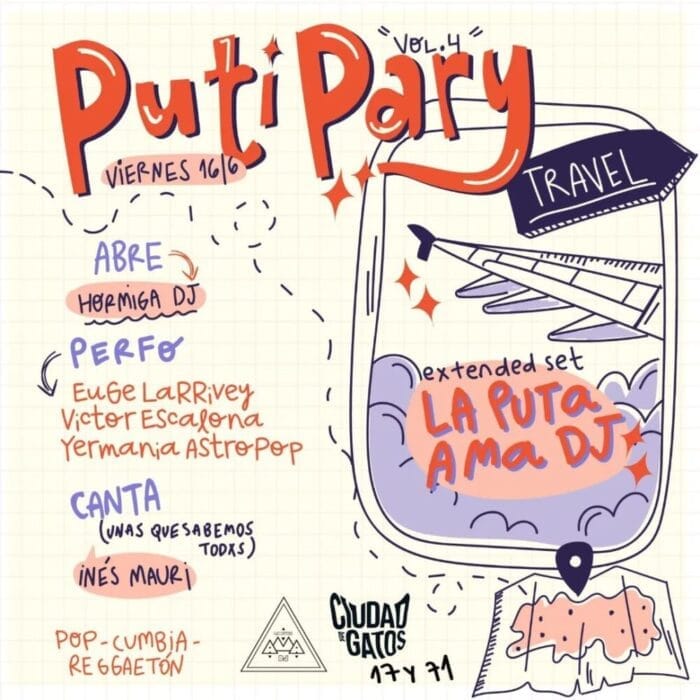 Puti Pary
"VOL.4"
VIERNES 16/6
TRAVEL
ABRE
HORMIGA DJ
PERFO
EUGE LARRIVEY
VICTOR ESCALONA
YERMANIA ASTROPOP
CANTA
(UNAS QUE SABEMOS
TODXS)
INÉS MAURI
POP-CUMBIA-
REGGAETÓN
extended set
LA PUTA
AMA DJ
CIUDAD
DE GATOS
17 y 71